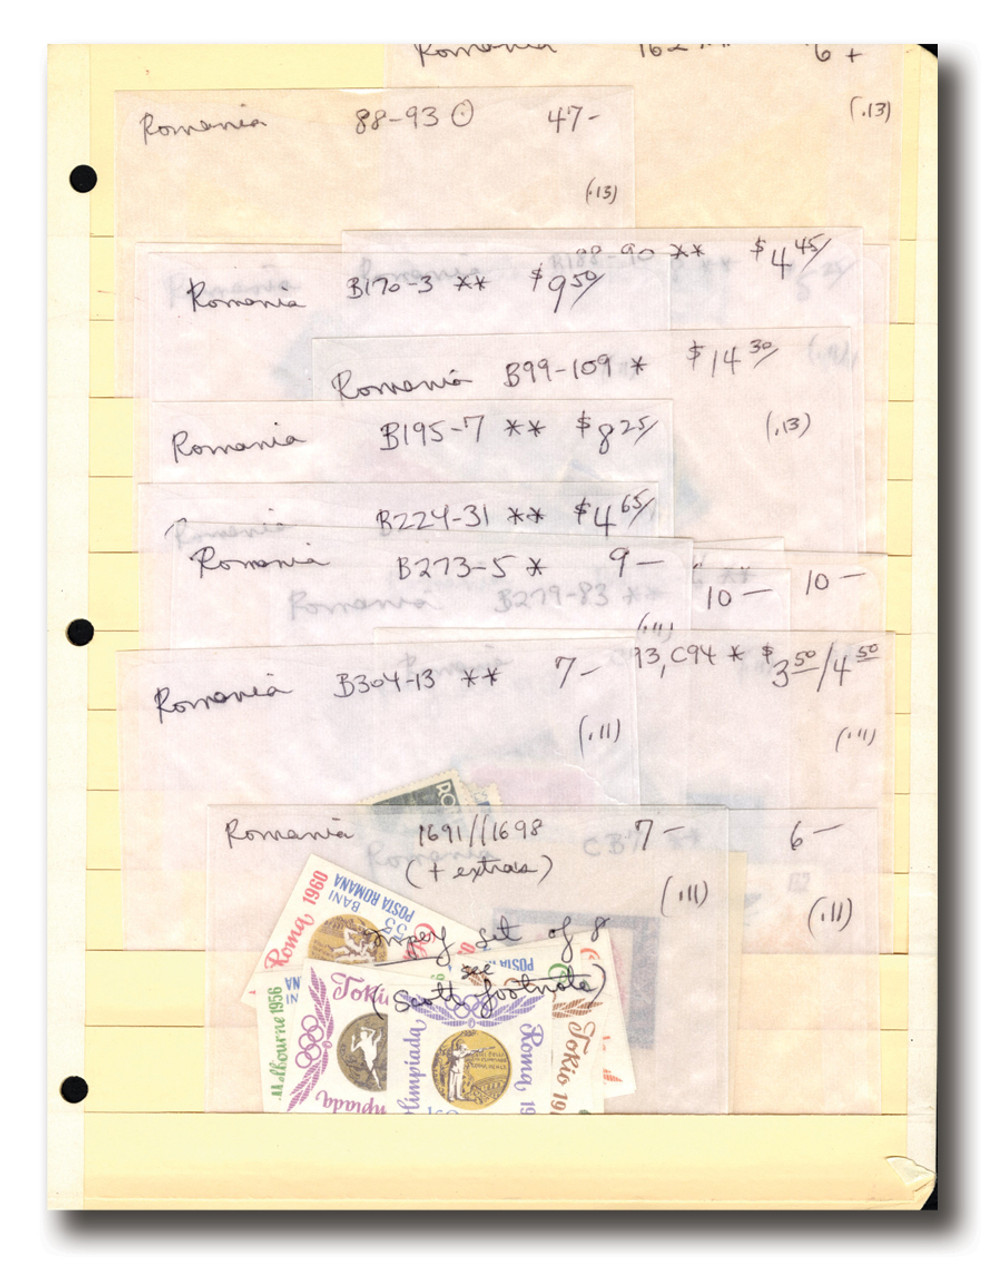 Romania 162 ** 6+
(.13)
Romania 88-93 ⊙ 47-
(.13)
Romania B188-90 ** $4 45/
Romania B170-3 ** $9 50/
Romania B99-109 * $14 30/
(.13)
Romania B195-7 ** $8 25/
Romania B224-31 ** $4 65/
Romania B273-5 * 9-
(.11)
Romania B279-83 ** 10-
10-
93, C94 * $3 50/4 50
(.11)
Romania B304-13 ** 7-
(.11)
Romania 1691//1698 7-
(+ extras)
(.11)
imperf set of 8
see
(Scott footnote)
Romania CB 6-
(.11)
Roma 1960
BANI 55
POSTA ROMANA
Melbourne 1956
Tokio
limpiada
Roma, 19
Tokio 19